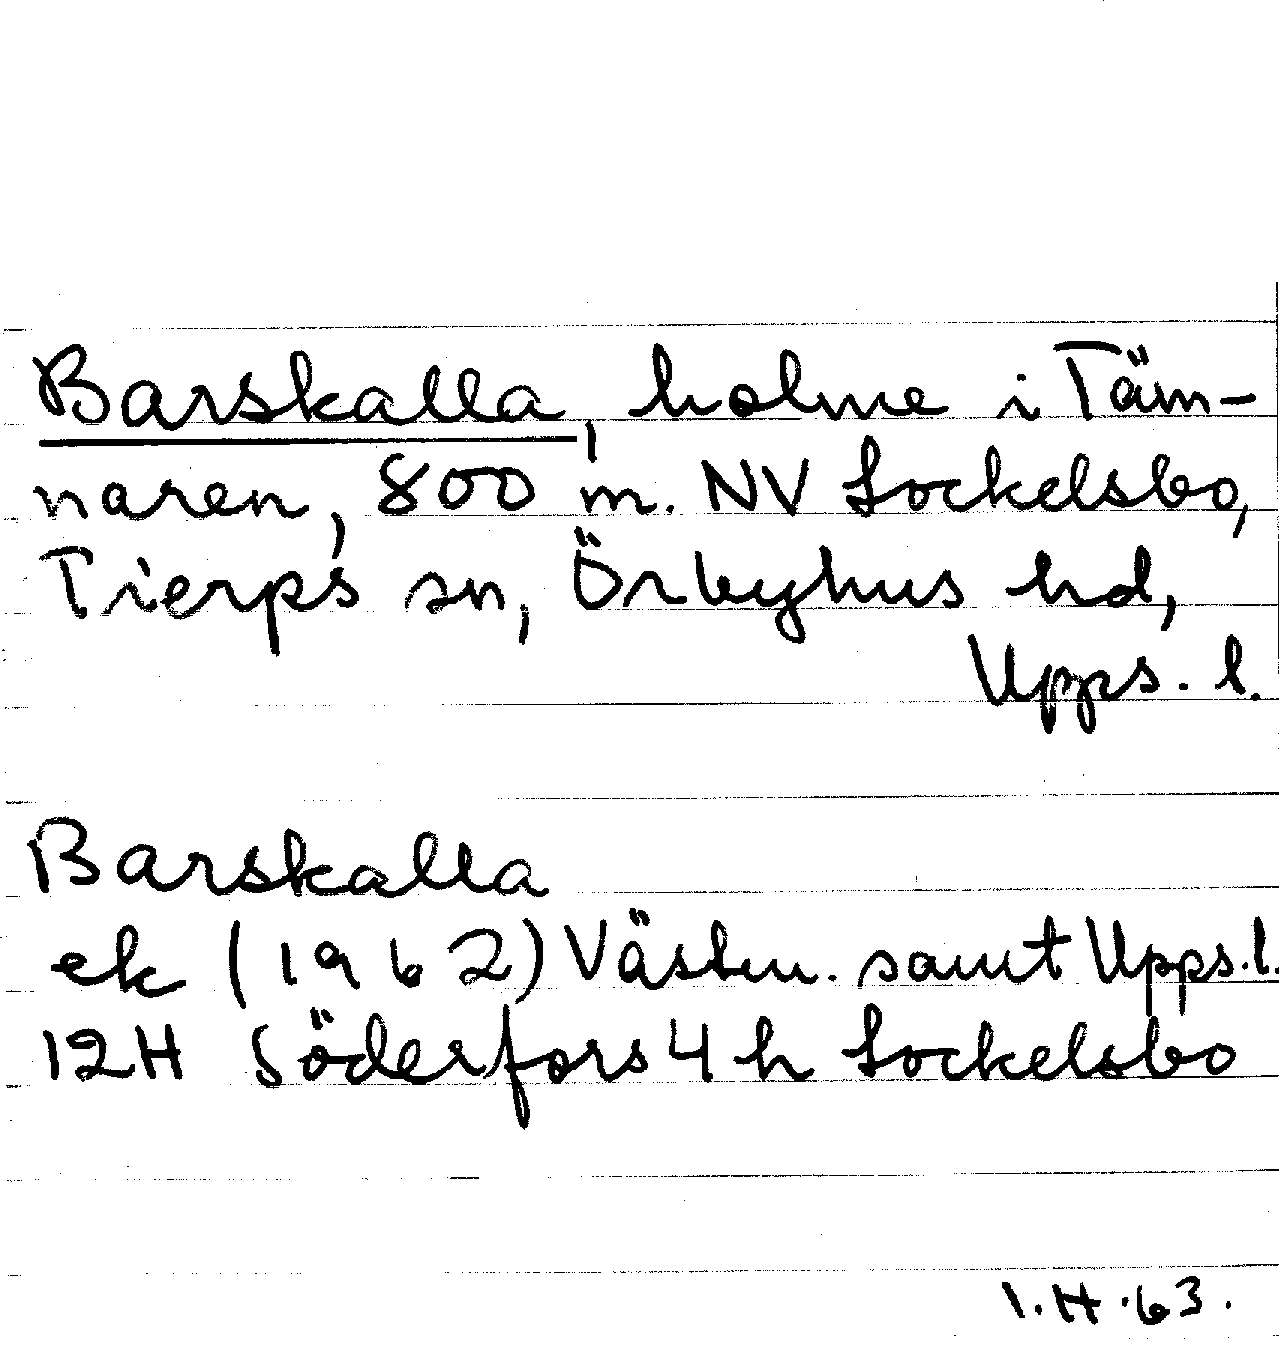 Barskalla, holme i Täm-
naren, 800 m. NV Sockelsbo,
Tierps sn, Örbyhus hd,
Upps. l.
Barskalla
ek (1962) Västm. samt Upps.l.
12H Söderfors 4 h Sockelsbo
I.H.63.